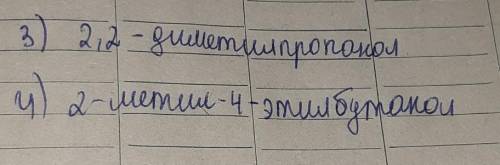 3) 2,2-диметилпропанол
4) 2-метил-4-этилбутанол